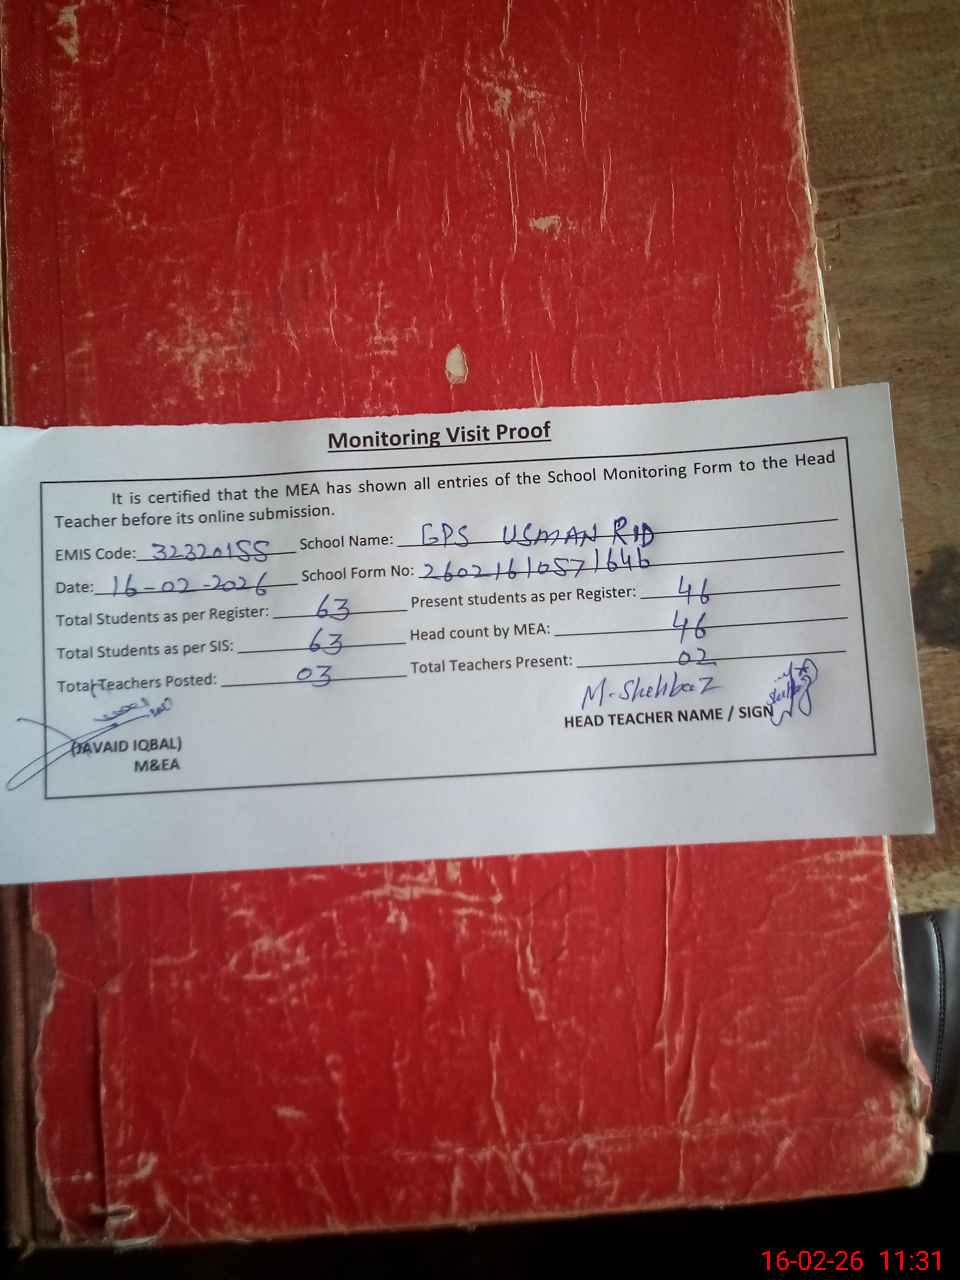 Monitoring Visit Proof
It is certified that the MEA has shown all entries of the School Monitoring Form to the Head
Teacher before its online submission.
EMIS Code: 32320155 School Name: GPS USMAN RID
Date: 16-02-2026 School Form No: 26021610571646
Total Students as per Register: 63 Present students as per Register: 46
Total Students as per SIS: 63 Head count by MEA: 46
Total Teachers Posted: 03 Total Teachers Present: 02
M. Shehbaz
HEAD TEACHER NAME / SIGN
(JAVAID IQBAL)
M&EA
16-02-26 11:31